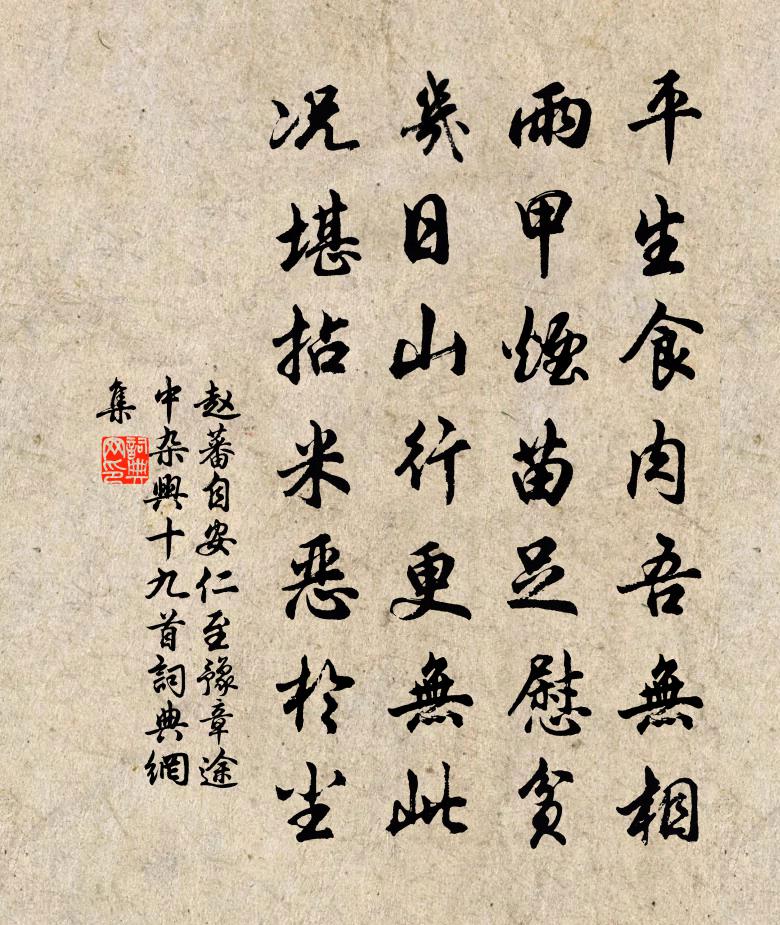 平生食肉吾無相
雨甲煙苗足慰貧
幾日山行更無此
況堪拈米惡於尘
赵蕃自安仁至豫章途
中杂興十九首詞典網
集
詞典網印